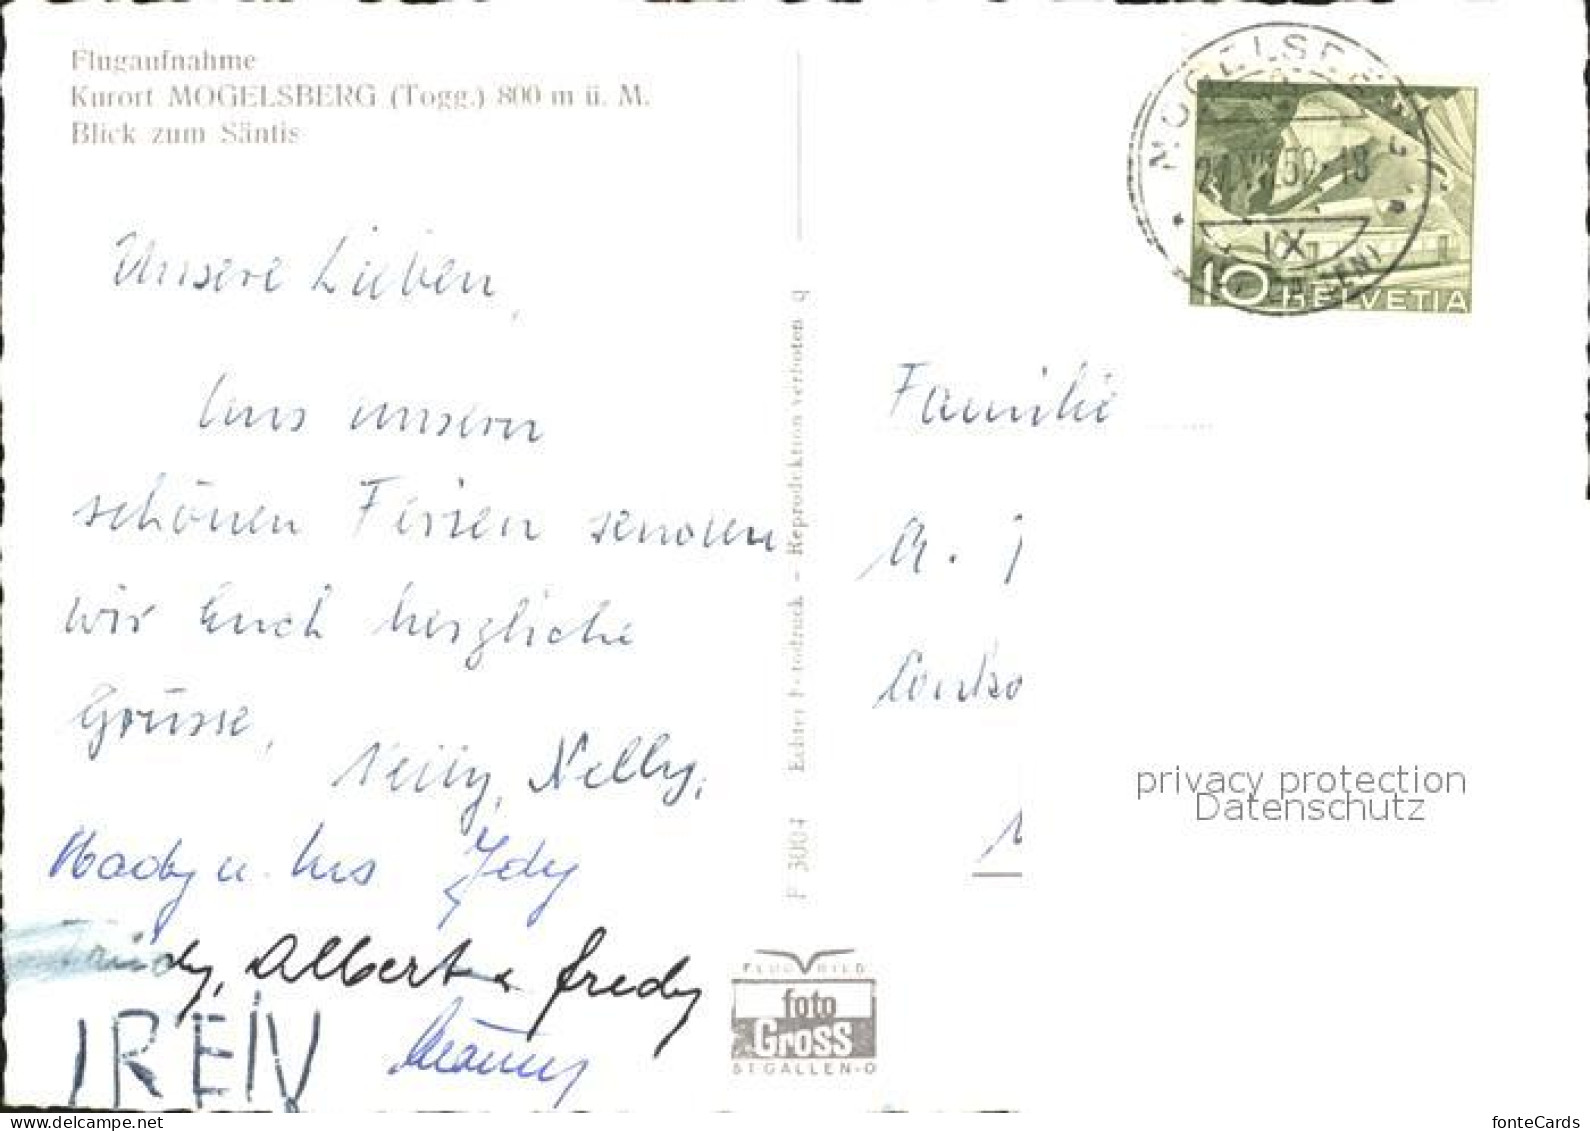 Flugaufnahme
Kurort MOGELSBERG (Togg.) 800 m ü. M.
Blick zum Säntis
Unsere Lieben,
Aus unsern
schönen Ferien senden
wir Euch herzliche
Grüsse,
Nelly,
u.
Albert & Fredy
IREN
P 3004 Echter Fotodruck - Reproduktion verboten q
FLUGBILD
foto
Gross
ST.GALLEN-O
MOGELSBERG
IX
10 HELVETIA
Familie
A.
privacy protection
Datenschutz
www.delcampe.net
fonteCards